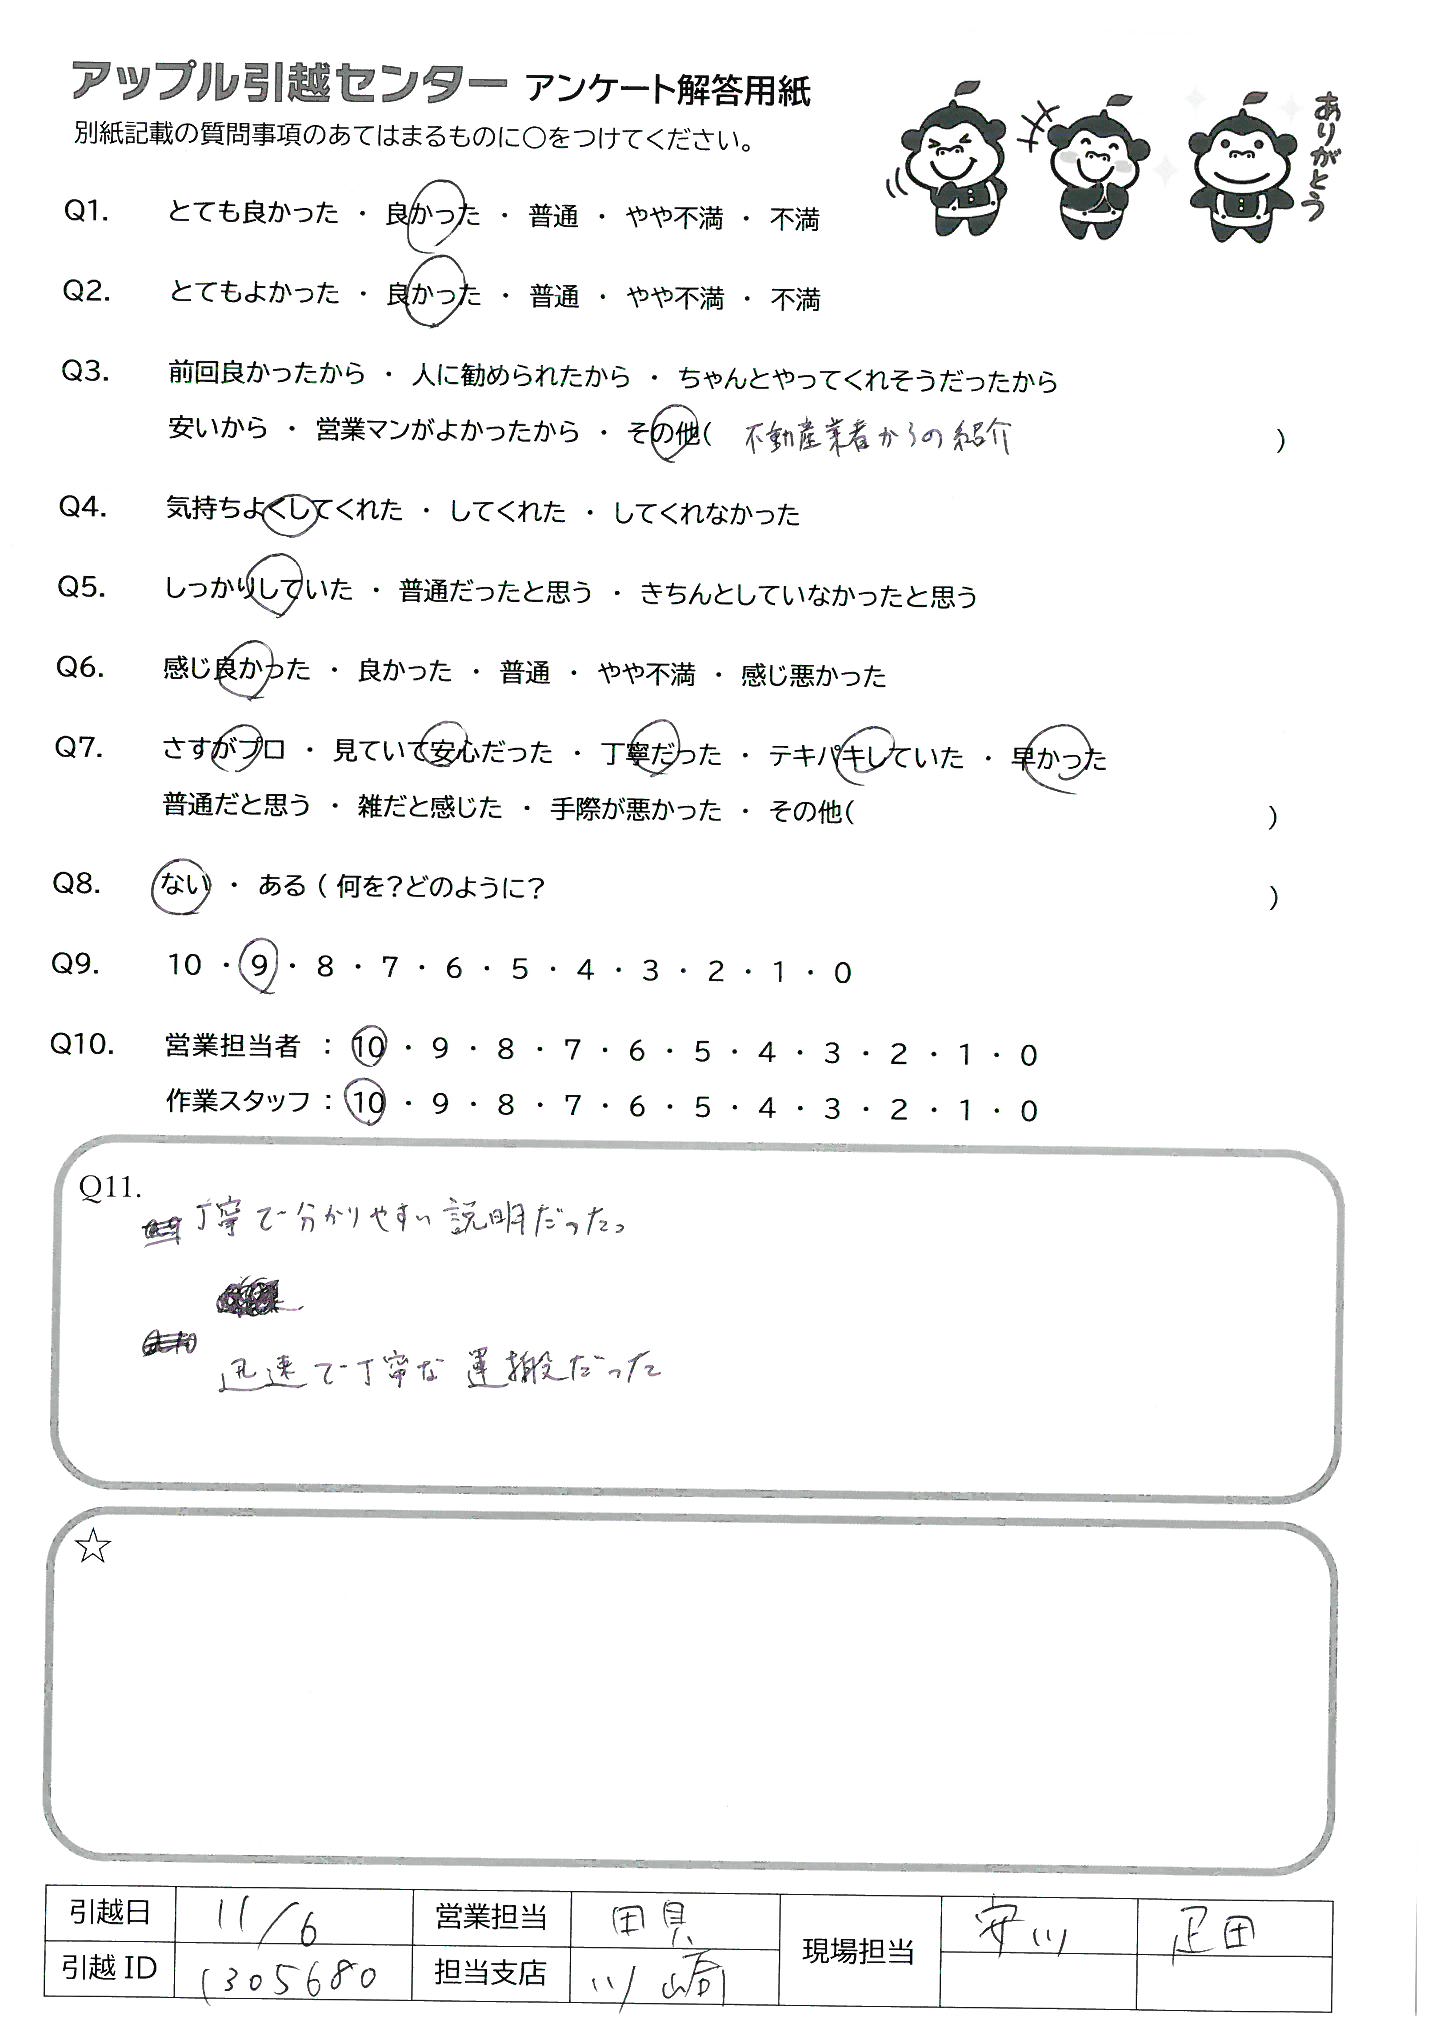 アップル引越センター アンケート解答用紙
別紙記載の質問事項のあてはまるものに○をつけてください。
ありがとう
Q1. とても良かった ・ 良かった ・ 普通 ・ やや不満 ・ 不満
Q2. とてもよかった ・ 良かった ・ 普通 ・ やや不満 ・ 不満
Q3. 前回良かったから ・ 人に勧められたから ・ ちゃんとやってくれそうだったから
安いから ・ 営業マンがよかったから ・ その他( 不動産業者からの紹介 )
Q4. 気持ちよくしてくれた ・ してくれた ・ してくれなかった
Q5. しっかりしていた ・ 普通だったと思う ・ きちんとしていなかったと思う
Q6. 感じ良かった ・ 良かった ・ 普通 ・ やや不満 ・ 感じ悪かった
Q7. さすがプロ ・ 見ていて安心だった ・ 丁寧だった ・ テキパキしていた ・ 早かった
普通だと思う ・ 雑だと感じた ・ 手際が悪かった ・ その他( )
Q8. ない ・ ある ( 何を?どのように? )
Q9. 10 ・ 9 ・ 8 ・ 7 ・ 6 ・ 5 ・ 4 ・ 3 ・ 2 ・ 1 ・ 0
Q10. 営業担当者 : 10 ・ 9 ・ 8 ・ 7 ・ 6 ・ 5 ・ 4 ・ 3 ・ 2 ・ 1 ・ 0
作業スタッフ : 10 ・ 9 ・ 8 ・ 7 ・ 6 ・ 5 ・ 4 ・ 3 ・ 2 ・ 1 ・ 0
Q11.
丁寧で分かりやすい説明だった。
迅速で丁寧な運搬だった
☆
引越日 11/6 営業担当 現場担当 安川 疋田
引越 ID 1305680 担当支店 川崎